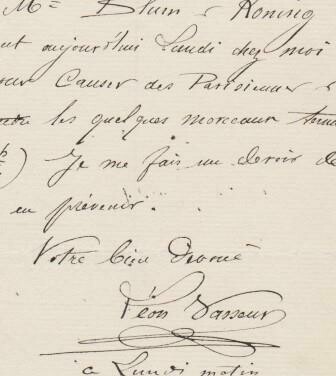 Mrs Blum & Koning
nt aujourd'hui Lundi chez moi
our Causer des Parisiennes &
les quelques morceaux
) Je me fais un devoir de
en prévenir.
Votre bien dévoué
Léon Vasseur
ce Lundi matin